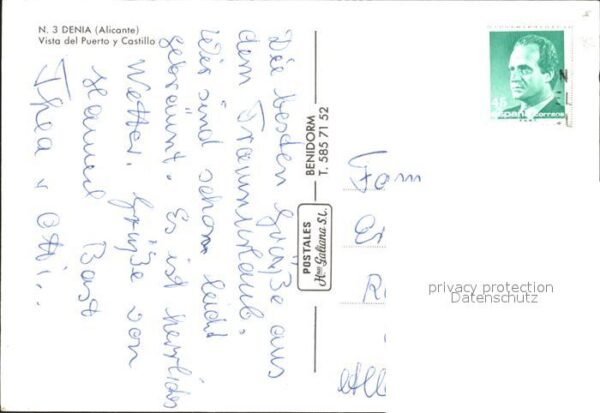 N. 3 DENIA (Alicante)
Vista del Puerto y Castillo
Die besten Grüße aus
dem Traumurlaub.
Wir sind schon leicht
gebräunt. Es ist herrliches
Wetter. Grüße von
Hannel Bast
Thea u Otti..
BENIDORM
T. 585 71 52
POSTALES
Hnos Galiana S.L.
45
España correos
Fam
privacy protection
Datenschutz